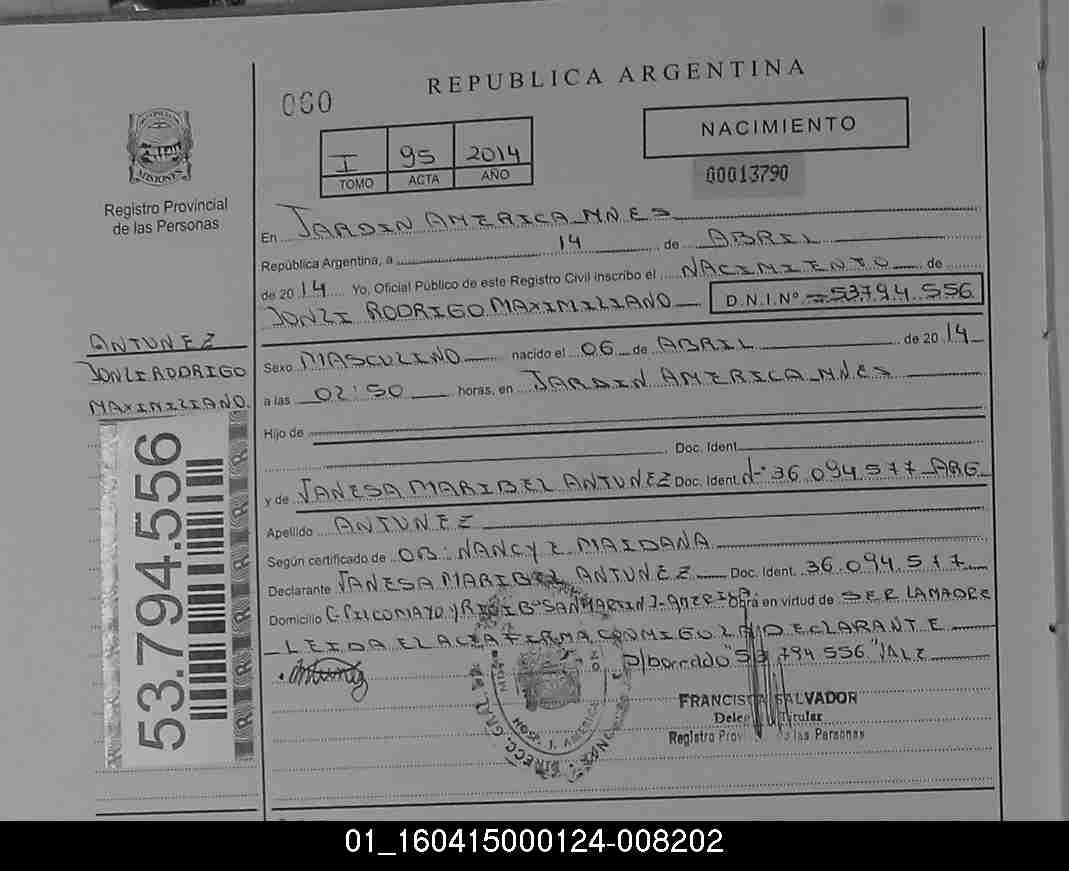 REPUBLICA ARGENTINA
060
NACIMIENTO
I 95 2014
TOMO ACTA AÑO
00013790
MISIONES
Registro Provincial
de las Personas
En JARDIN AMERICA MNES
República Argentina, a 14 de ABRIL
de 2014 Yo, Oficial Público de este Registro Civil inscribo el NACIMIENTO de
JONLI RODRIGO MAXIMILIANO D.N.I.Nº 53.794.556
ANTUNEZ
JONLI RODRIGO
MAXIMILIANO
53.794.556
Sexo MASCULINO nacido el 06 de ABRIL de 2014
a las 02:50 horas, en JARDIN AMERICA MNES
Hijo de
Doc. Ident.
y de VANESA MARIBEL ANTUNEZ Doc. Ident. 36.094.577 ARG
Apellido ANTUNEZ
Según certificado de OB: NANCY E MAIDANA
Declarante VANESA MARIBEL ANTUNEZ Doc. Ident. 36.094.577
Domicilio C. PILCOMAYO Y Bº SAN MARTIN Obra en virtud de SER LA MADRE
LEIDA EL ACTA FIRMA CONMIGO LA DECLARANTE
p/borrado "53.794.556" VALE
Antunez
HOSP. J. AMERICA
FRANCIS SALVADOR
Registro Prov las Personas
01_160415000124-008202